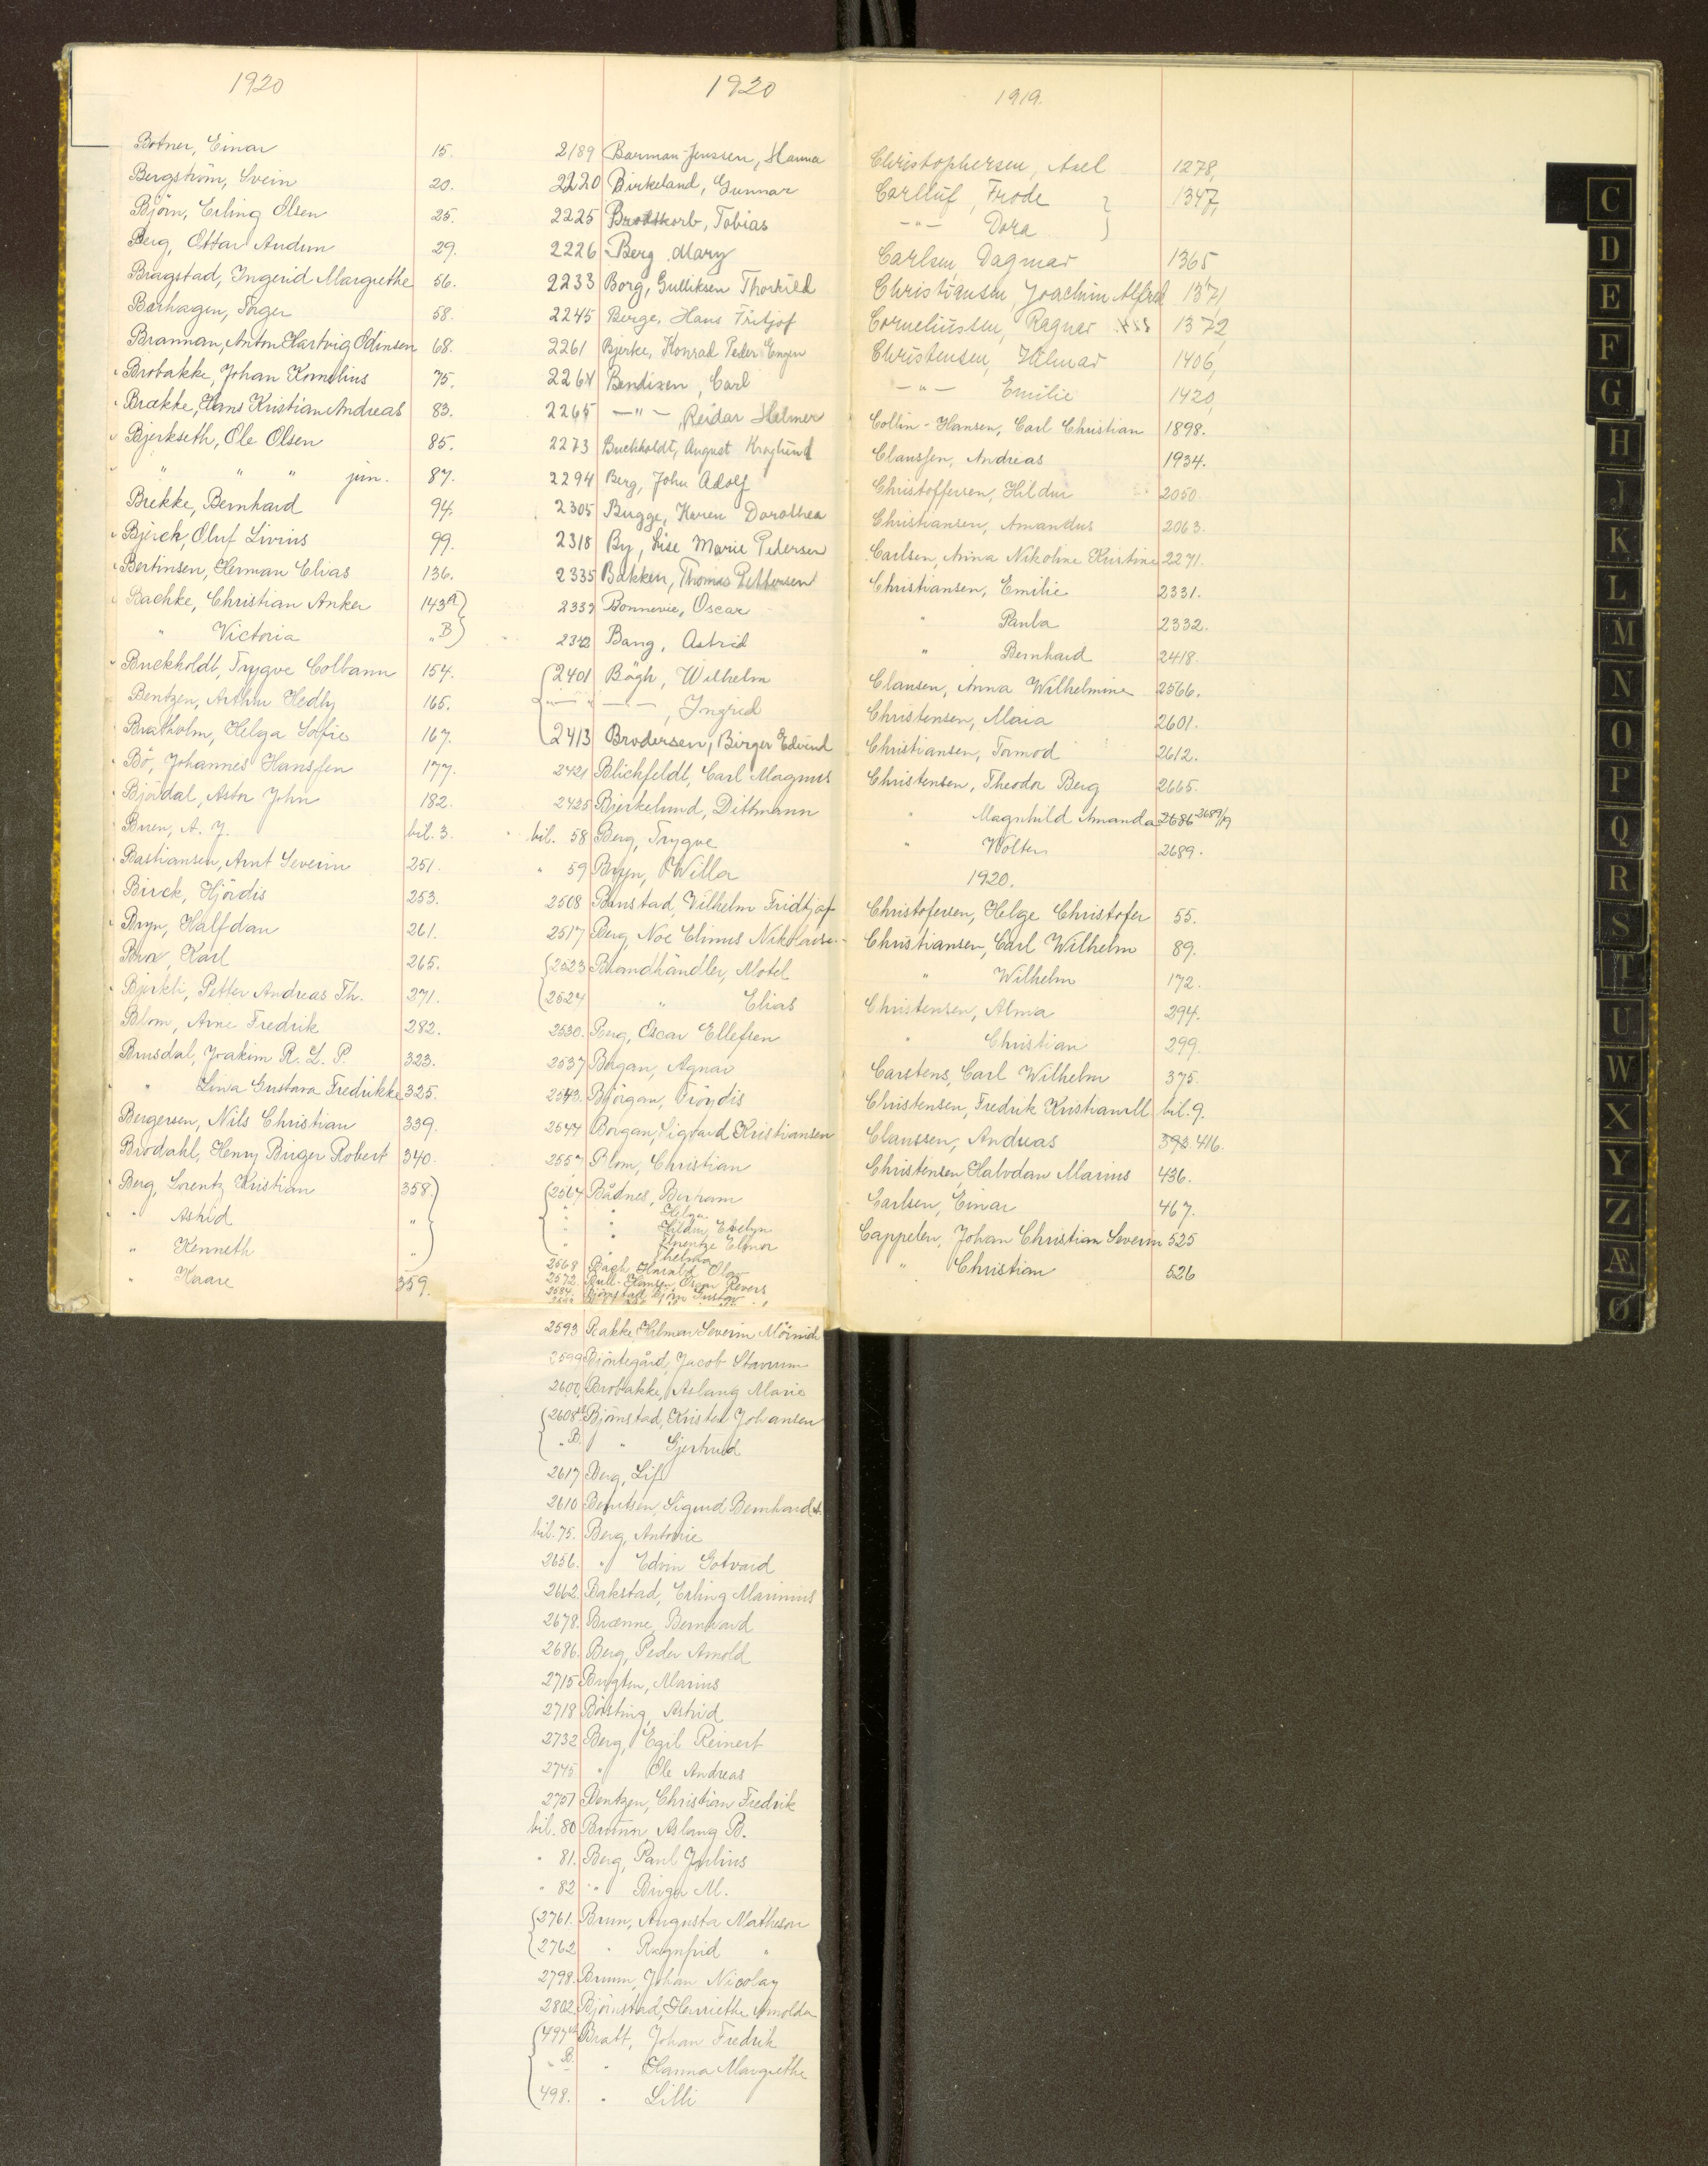 1920
Botner, Einar 15.
Bergström, Svein 20.
Björn, Erling Olsen 25.
Berg, Ottar Audun 29.
Bragstad, Ingerid Margrethe 56.
Barhagen, Torger 58.
Brannan, Anton Hartvig Odinsen 68.
Brobakke, Johan Kornelius 75.
Brække, Hans Kristian Andreas 83.
Bjerkseth, Ole Olsen 85.
" " " jun. 87.
Brekke, Bernhard 94.
Bjerck, Oluf Livius 99.
Bertinsen, Herman Elias 136.
Bachke, Christian Anker 143A
" Victoria " B
Buckholdt, Trygve Colbann 154.
Bentzen, Arthur Hedly 165.
Bratholm, Helga Sofie 167.
Bö, Johannes Hanssen 177.
Björdal, Astor John 182.
Buen, A. J. bil. 3.
Bastiansen, Arnt Severin 251.
Birck, Hjördis 253.
Bryn, Halfdan 261.
Karl 265.
Bjerkli, Petter Andreas Th. 271.
Blom, Arne Fredrik 282.
Brusdal, Joakim R. L. P. 323.
" Lina Gustava Fredrikke 325.
Bergersen, Nils Christian 339.
Brodahl, Henry Birger Robert 340.
Berg, Lorentz Kristian 358.
" Astrid "
" Kenneth "
" Kaare 359.
1920
2189 Barman-Jenssen, Hanna
2220 Birkeland, Gunnar
2225 Brodtkorb, Tobias
2226 Berg Mary
2233 Borg, Gulliksen Thorkild
2245 Berge, Hans Fritjof
2261 Bjerke, Konrad Peder Engen
2264 Bendixen, Carl
2265 —"— , Reidar Helmer
2273 Buchholdt, August Kroglund
2294 Berg, John Adolf
2305 Bugge, Karen Dorothea
2318 By, Lise Marie Pedersen
2335 Bakken, Thomas Pettersen
2339 Bonnevie, Oscar
2342 Bang, Astrid
2401 Bögh, Wilhelm
—"— —"—, Ingrid
2413 Brodersen, Birger Edvind
2421 Blichfeldt, Carl Magnus
2425 Bjerkelund, Dittmann
bil. 58 Berg, Trygve
" 59 Bryn, Willa
2508 Bonstad, Vilhelm Fridtjof
2517 Berg, Noe Elinus Nikolaisen
2523 Brandhändler, Motel
2524 " Elias
2530. Berg, Oscar Ellefsen
2537 Borgan, Agnar
2543. Björgan, Fröydis
2544 Borgan, Sigvard Kristiansen
2557 Blom, Christian
2564 Bådnes, Bertram
" " Helga
" " Hildur Evelyn
" " Florentze Elinor
" Thelma
2568 Bögh, Harald Olav
2572. Bull-Hansen, Oscar Revers
2584. Björnstad, Björn Gustav
2593 Bakke, Hilmar Severin
2599 Björntegård, Jacob Stavrum
2600. Brobakke, Aslaug Marie
2608A Björnstad, Kristen Johansen
" B. " Gjertrud
2617 Berg, Lif
2610 Berntsen, Sigurd Bernhard
bil. 75. Berg, Antonie
2656. " Edvin Gotvard
2662. Bakstad, Erling Marinius
2678. Brænne, Bernhard
2686. Berg, Peder Arnold
2715 Bugten, Marius
2718 Börsting, Astrid
2732 Berg, Egil Reinert
2745 " Ole Andreas
2751 Bentzen, Christian Fredrik
bil. 80 Aslaug B.
" 81. Berg, Paul Julius
" 82 " Birger M.
2761. Brun, Augusta Matheson
2762 " Ragnfrid "
2798. Bruun, Johan Nicolay
2802. Björnstad, Henriette Arnolda
497A Bratt, Johan Fredrik
" B. " Hanna Margrethe
498. " Lilli
1919.
Christophersen, Axel 1278,
Carlluf, Frode 1347,
—"— Dora
Carlsen, Dagmar 1365
Christiansen, Joachim Alfred 1371
Corneliussen, Ragnar 1372,
Christensen, Hilmar 1406,
—"— Emilie 1420,
Collin-Hansen, Carl Christian 1898.
Claussen, Andreas 1934.
Christoffersen, Hildur 2050.
Christiansen, Amandus 2063.
Carlsen, Anna Nikoline Kristine 2271.
Christiansen, Emilie 2331.
" Paula 2332.
" Bernhard 2418.
Clausen, Anna Wilhelmine 2566.
Christensen, Maia 2601.
Christiansen, Tormod 2612.
Christensen, Theodor Berg 2665.
" Magnhild Amanda 2686 2689/19
" Wolter 2689.
1920.
Christofersen, Helge Christofer 55.
Christiansen, Carl Wilhelm 89.
" Wilhelm 172.
Christensen, Alma 294.
" Christian 299.
Carstens, Carl Wilhelm 375.
Christensen, Fredrik Kristian bil. 9.
Claussen, Andreas 393 416.
Christensen, Halvdan Marius 436.
Carlsen, Einar 467.
Cappelen, Johan Christian Severin 525
" Christian 526
C
D
E
F
G
H
J
K
L
M
N
O
P
Q
R
S
T
U
W
X
Y
Z
Æ
Ø